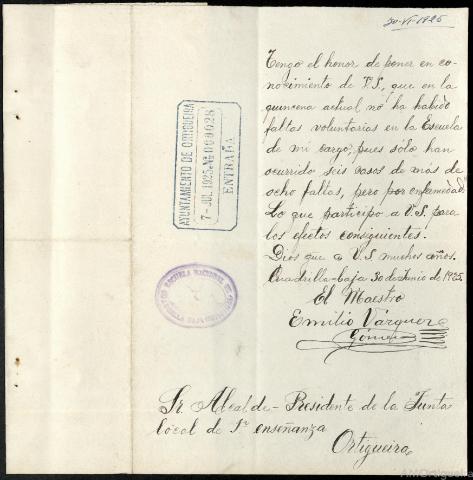 30-VI-1925
Tengo el honor de poner en co-
nocimiento de V.S., que en la
quincena actual no ha habido
faltas voluntarias en la Escuela
de mi cargo; pues sólo han
ocurrido seis casos de más de
ocho faltas, pero por enfermedad.
Lo que participo a V.S. para
los efectos consiguientes.
Dios que a V.S. muchos años.
Cuadrilla-baja 30 de Junio de 1925.
El Maestro
Emilio Vázquez
Gómez
AYUNTAMIENTO DE ORTIGUEIRA
7-JUL.1925 ★ Nº 000028
ENTRADA
ESCUELA NACIONAL DE
Sr. Alcalde-Presidente de la Junta
local de 1ª enseñanza
Ortigueira
AMOrtigueira